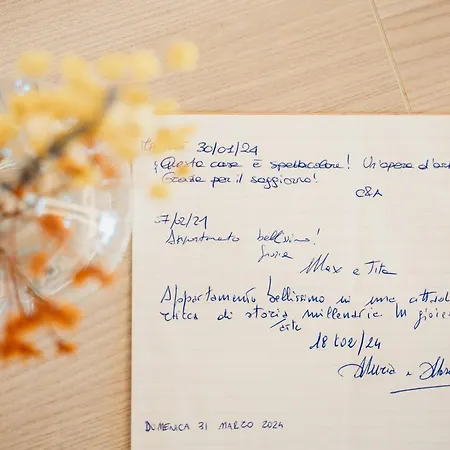 30/01/24
Questa casa è spettacolare! Un'opera d'art
Grazie per il soggiorno!
C&A
7/02/21
Appartamento bellissimo!
Max e Tita
Appartamento bellissimo in una città
ricca di storia millenaria. Un gioie
arte
18/02/24
DOMENICA 31 MARZO 2024